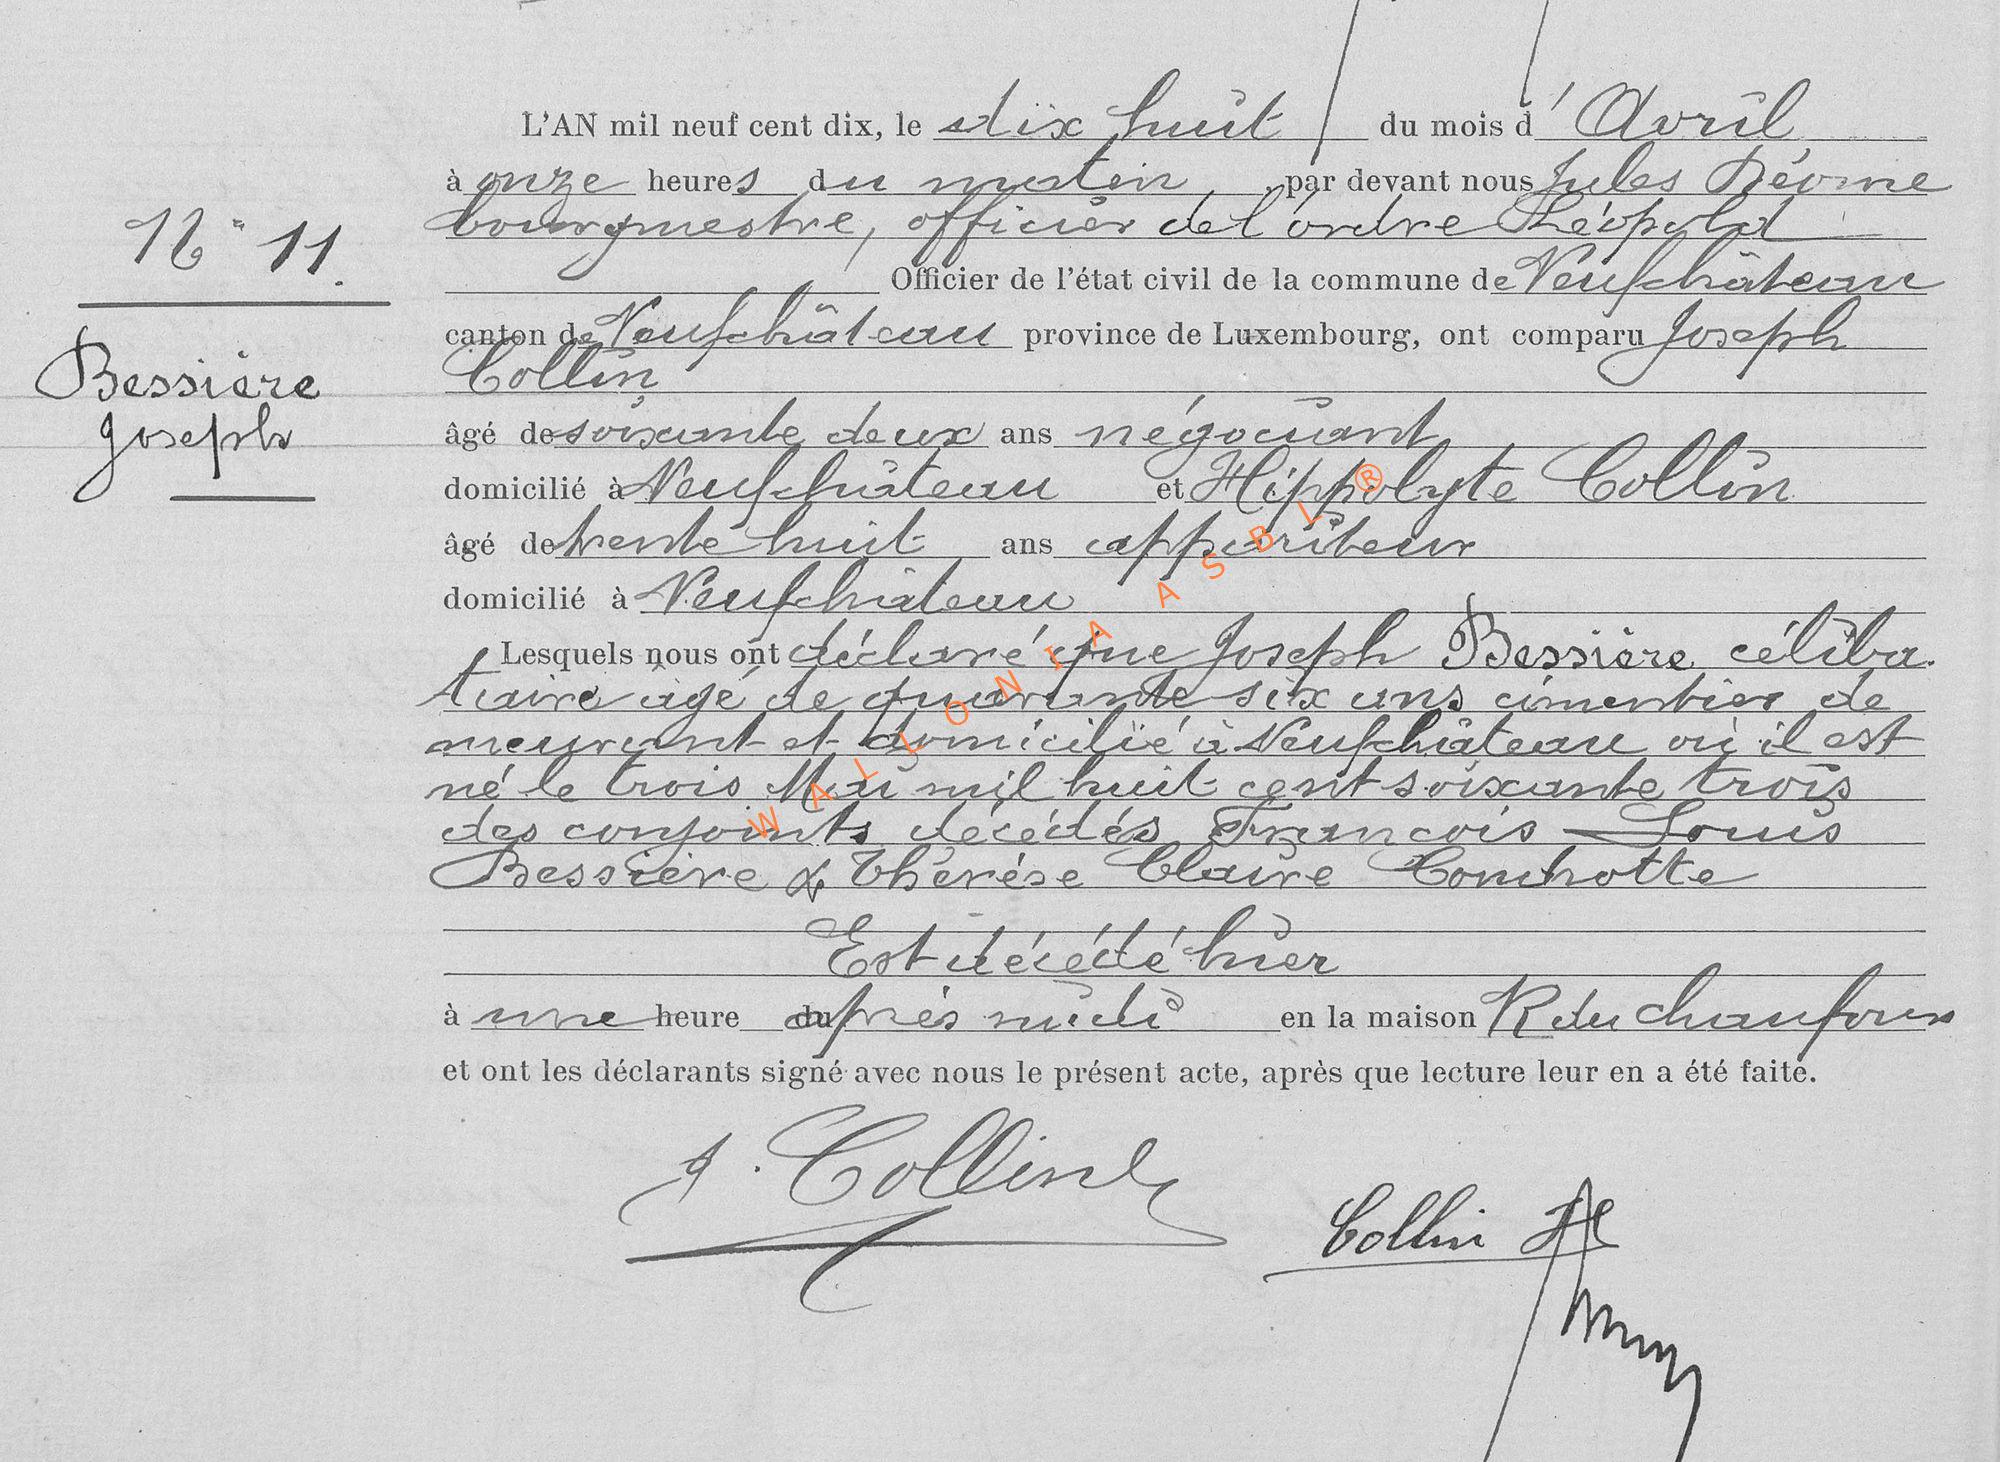 L'AN mil neuf cent dix, le dix huit du mois d'Avril
à onze heures du matin, par devant nous Jules
bourgmestre, officier de l'ordre Léopold
Officier de l'état civil de la commune de Neufchâteau
N° 11.
canton de Neufchâteau province de Luxembourg, ont comparu Joseph
Collin
Bessière
Joseph
âgé de soixante deux ans négociant
domicilié à Neufchâteau et Hippolyte Collin
âgé de trente huit ans appariteur
domicilié à Neufchâteau
Lesquels nous ont déclaré que Joseph Bessière céliba
taire âgé de quarante six ans cimentier de
meurant et domicilié à Neufchâteau où il est
né le trois Mai mil huit cent soixante trois
des conjoints décédés François Louis
Bessière & Thérèse Claire Conrhotte
Est décédé hier
à une heure du après midi en la maison R du chaufour
et ont les déclarants signé avec nous le présent acte, après que lecture leur en a été faite.
J. Collin
Collin H
WALLONIA ASBL ®